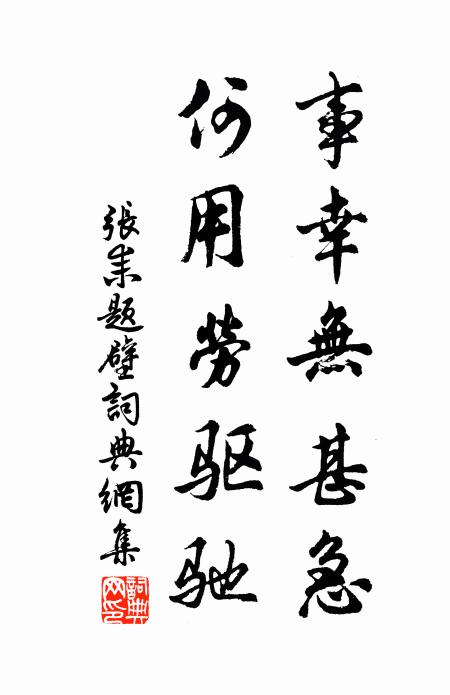 事幸無甚急
何用勞驱驰
張耒題壁詞典網集
詞典網印